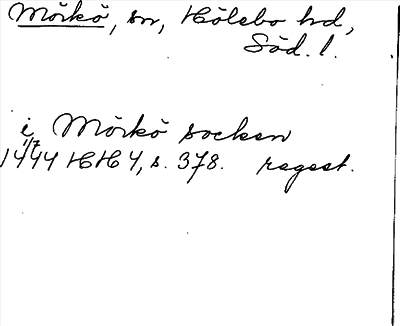 Mörkö, sn, Hölebo hd,
Söd. l.
i Mörkö socken
1/7
1444 HH 4, s. 378. regest.